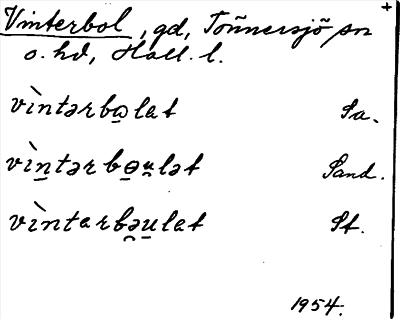 +
Vinterbol, gd, Tönnersjö sn
o. hd, Hall. l.
vìntərbo̲lət Sa.
vìn̲tərbɵ̲u̲lət Sand.
vìntərbəu̲lət St.
1954.